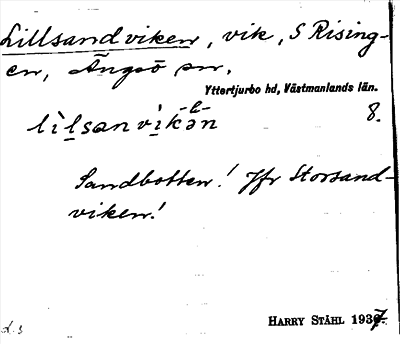 Lillsandviken, vik, S Rising-
en, Ängsö sn.
Yttertjurbo hd, Västmanlands län.
lìl̠sanvi̠kən
-k-
8.
Sandbotten! Jfr Storsand-
viken!
HARRY STÅHL 1937.